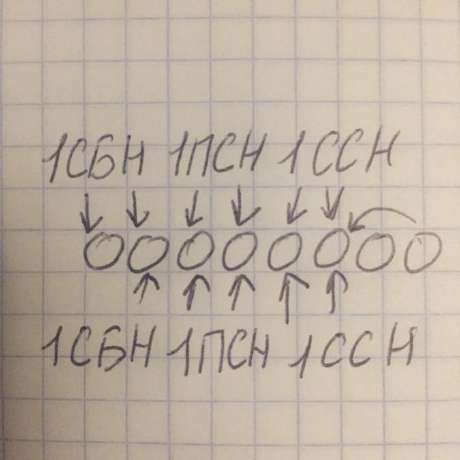 1СБН 1ПСН 1ССН
1СБН 1ПСН 1ССН